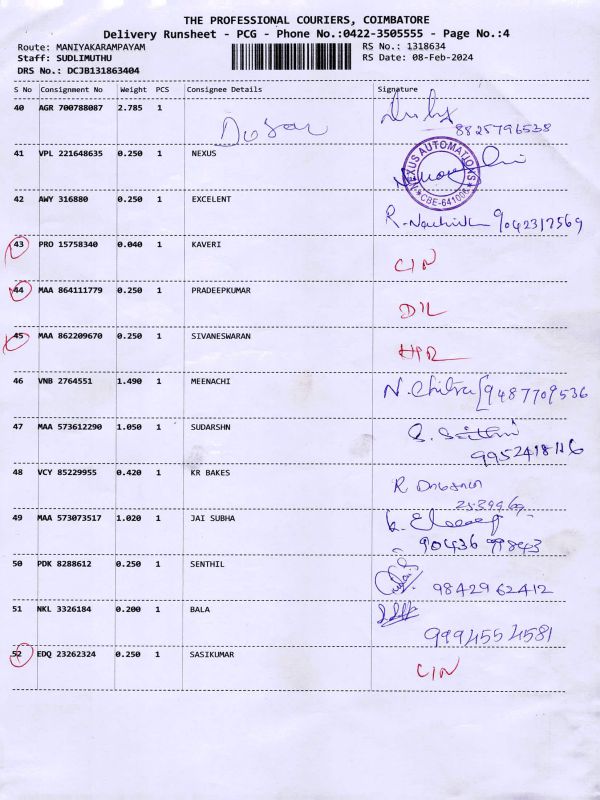 THE PROFESSIONAL COURIERS, COIMBATORE
Delivery Runsheet - PCG - Phone No.:0422-3505555 - Page No.:4
Route: MANIYAKARAMPAYAM RS No.: 1318634
Staff: SUDLIMUTHU RS Date: 08-Feb-2024
DRS No.: DCJB131863404
S No Consignment No Weight PCS Consignee Details Signature
40 AGR 700788087 2.785 1
8825796538
41 VPL 221648635 0.250 1 NEXUS
NEXUS AUTOMATIONS
CBE-641006
42 AWY 316880 0.250 1 EXCELENT
9042317569
43 PRO 15758340 0.040 1 KAVERI CIN
44 MAA 864111779 0.250 1 PRADEEPKUMAR D'L
45 MAA 862209670 0.250 1 SIVANESWARAN
46 VNB 2764551 1.490 1 MEENACHI N. Chitra 9487709536
47 MAA 573612290 1.050 1 SUDARSHN
48 VCY 85229955 0.420 1 KR BAKES
49 MAA 573073517 1.020 1 JAI SUBHA
90436 99843
50 PDK 8288612 0.250 1 SENTHIL 98429 62412
51 NKL 3326184 0.200 1 BALA
9994554581
52 EDQ 23262324 0.250 1 SASIKUMAR CIN